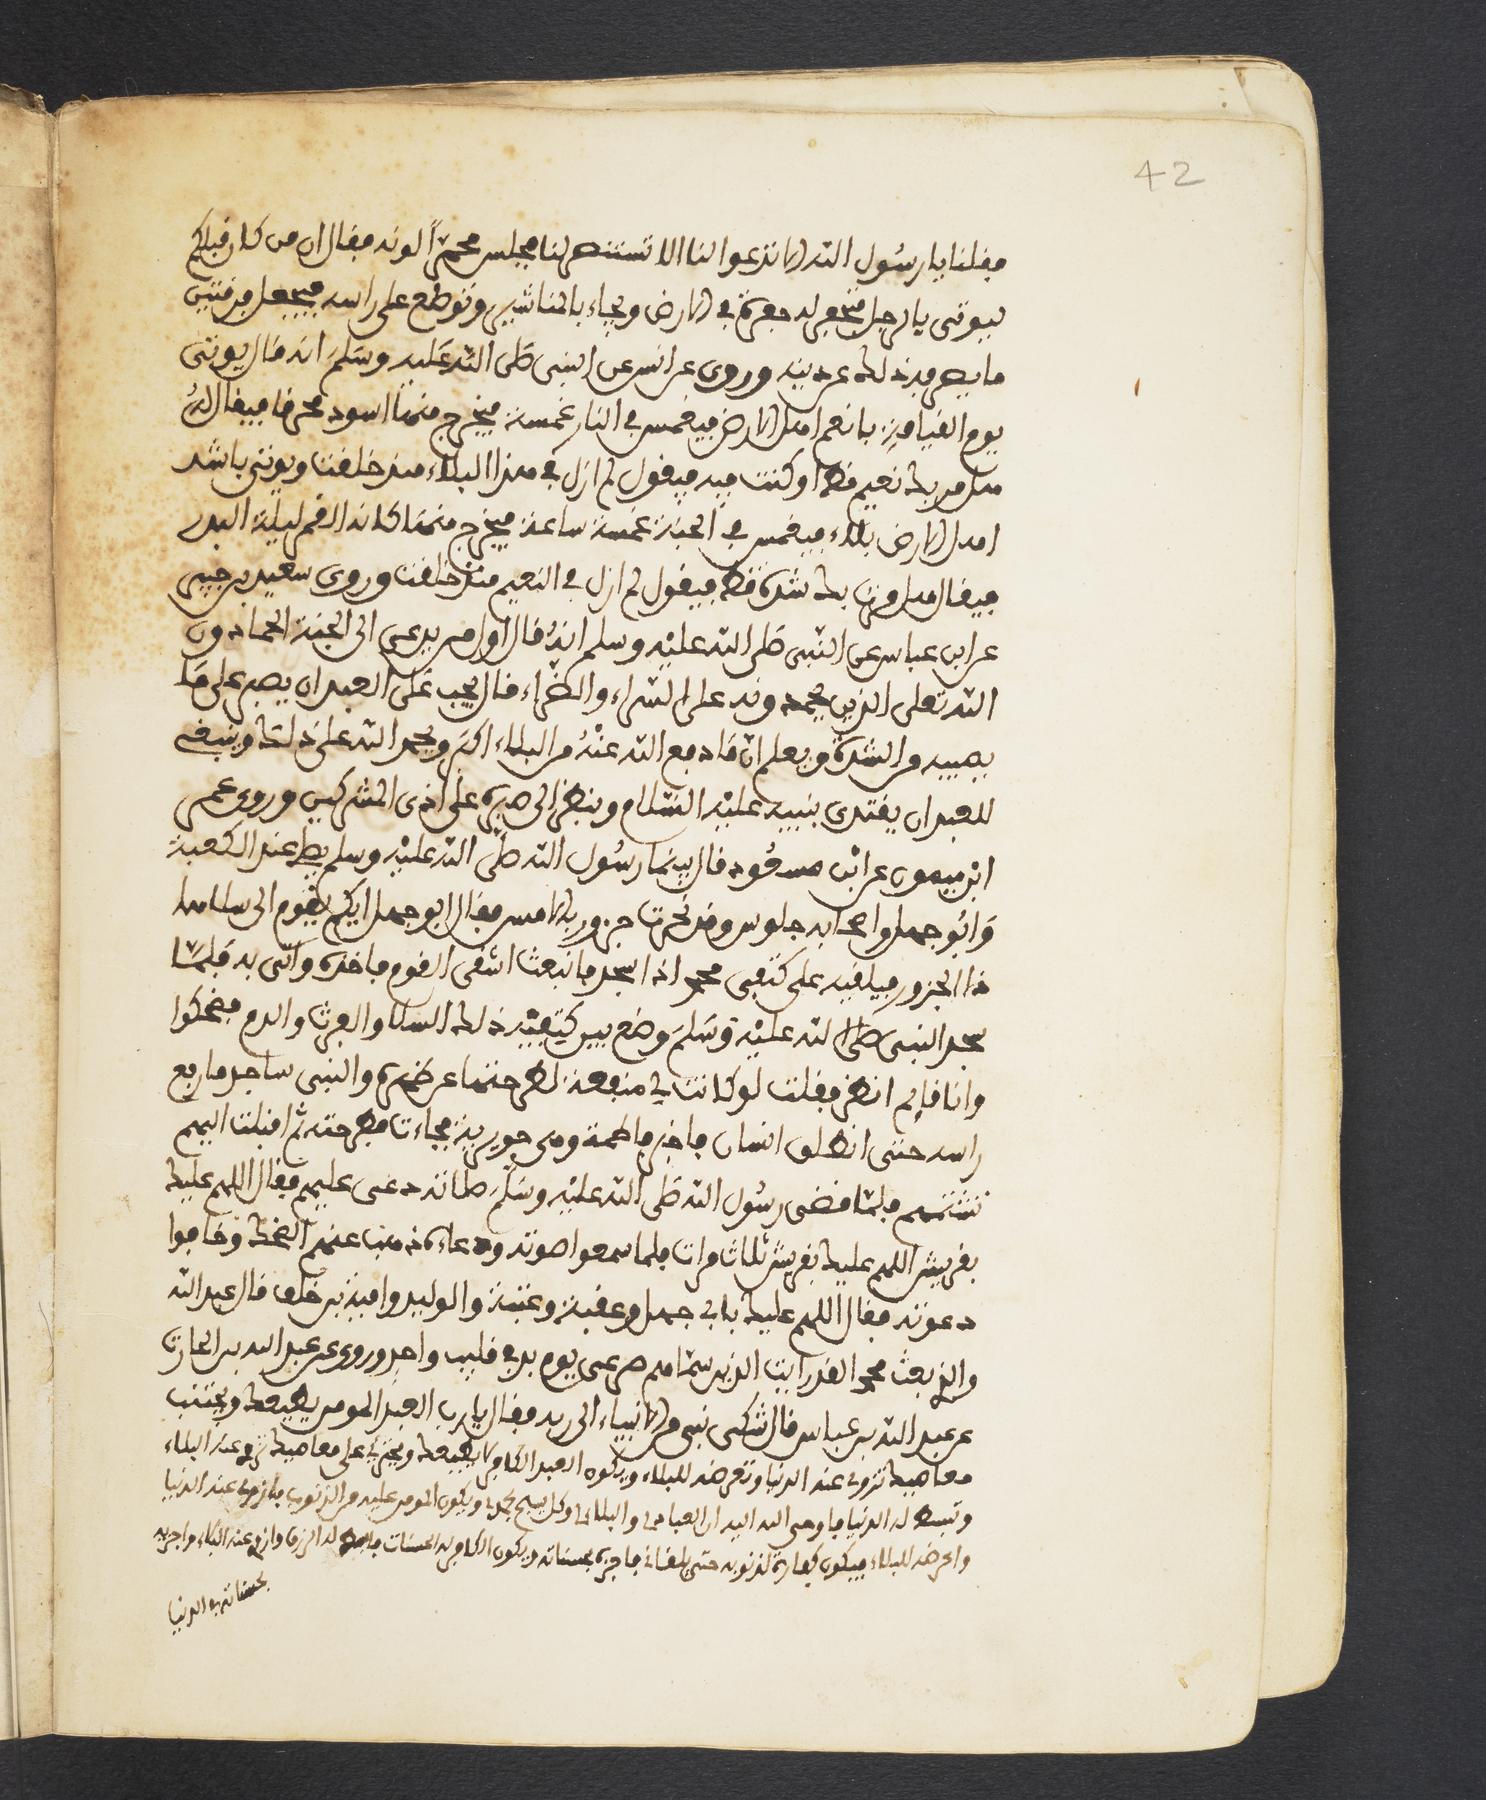 42
فقلنا يا رسول الله الا تدعوا لنا الا تستنصر لنا فجلس محمرا لونه فقال ان من كان قبلكم
ليوتى بالرجل فيحفر له حفرة في الارض ويجاء بالمناشير وتوضع على راسه فيجعل فرقتين
ما يصرفه ذلك عن دينه وروى عن انس عن النبي صلى الله عليه وسلم انه قال يوتى
يوم القيامة بانعم اهل الارض فيغمس في النار غمسة فيخرج منها اسود محرقا فيقال له
هل مر بك نعيم قط او كنت فيه فيقول لم ازل في هذا البلاء منذ خلقت ويوتى باشد
اهل الارض بلاء فيغمس في الجنة غمسة ساعة فيخرج منها كانه القمر ليلة البدر
فيقال هل مر بك شدة قط فيقول لم ازل في النعيم منذ خلقت وروى سعيد بن جبير
عن ابن عباس عن النبي صلى الله عليه وسلم انه قال اول من يدعى الى الجنة الحمادون
الله تعلى الذين يحمدونه على السراء والضراء قال يجب على العبد ان يصبر على ما
يصيبه من الشدة ويعلم ان ما دفع الله عنه من البلاء اكثر ويحمد الله على ذلك وينبغي
للعبد ان يقتدى بنبيه عليه السلام وينظر الى صبره على اذى المشركين وروى عمر
ابن ميمون عن ابن مسعود قال بينما رسول الله صلى الله عليه وسلم يصلى عند الكعبة
وابو جهل واصحابه جلوس وقد نحرت جزور بالامس فقال ابو جهل ايكم يقوم الى سلا
هذا الجزور فيلقيه على كتفى محمد اذا سجد فانبعث اشقى القوم فاخذه واتى به فلما
سجد النبي صلى الله عليه وسلم وضع بين كتفيه ذلك السلا والفرث والدم فضحكوا
وانا قايم انظر فقلت لو كانت لي منفعة لطرحتها عن ظهره والنبي ساجد ما رفع
راسه حتى انطلق انسان فاخبر فاطمة وهى جويرية فجاءت فطرحته ثم اقبلت اليهم
تشتمهم فلما قضى رسول الله صلى الله عليه وسلم صلاته دعى عليهم فقال اللهم عليك
بقريش اللهم عليك بقريش ثلاث مرات فلما سمعوا صوته ودعاءه ذهب عنهم الضحك وخافوا
دعوته فقال اللهم عليك بابي جهل وعقبة وعتبة والوليد وامية بن خلف قال عبد الله
والذي بعث محمد لقد رايت الذين سماهم صرعى يوم بدر في قليب واحد وروى عن عبد الله بن الحارث
عن عبد الله بن عباس قال شكى نبي من الانبياء الى ربه فقال يا رب العبد المومن يطيعك ويجتنب
معاصيك تزوى عنه الدنيا وتعرضه للبلاء ويكون العبد الكافر لا يطيعك ويجتري على معاصيك تزوى عنه البلاء
وتبسط له الدنيا فاوحى الله اليه ان العباد لي والبلاء لي وكل يسبح بحمدي ويكون المومن عليه من الذنوب فازوى عنه الدنيا
واعرضه للبلاء فيكون كفارة لذنوبه حتى يلقاني فاجزه بحسناته ويكون الكافر له الحسنات فابسط له الرزق وازوى عنه البلاء فاجزيه
بحسناته في الدنيا